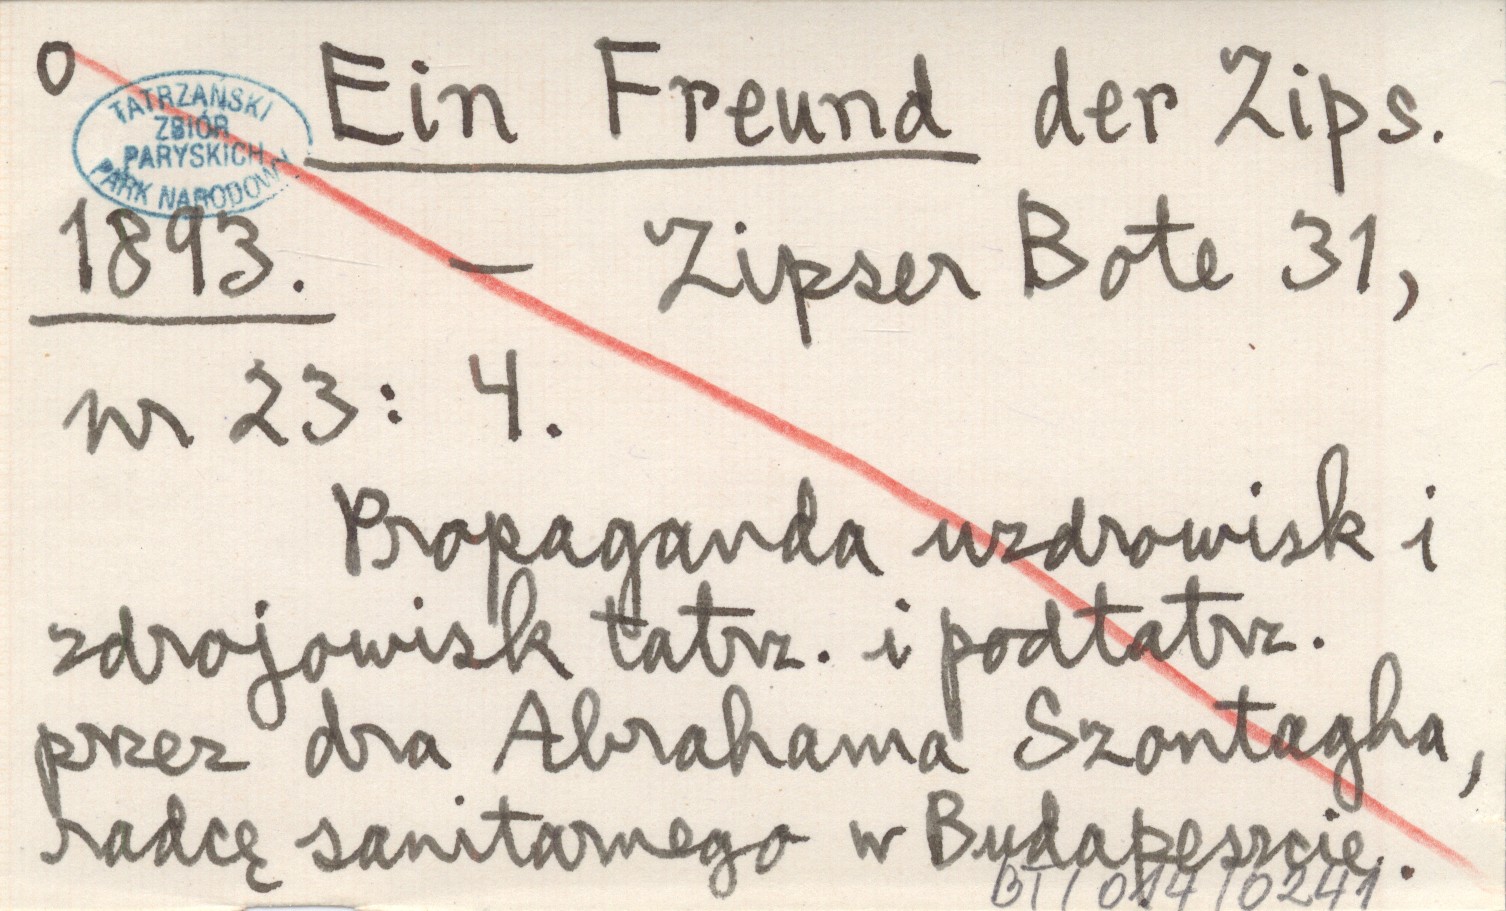 o
TATRZAŃSKI
ZBIÓR
PARYSKICH
PARK NARODOWY
Ein Freund der Zips.
1893. — Zipser Bote 31,
nr 23: 4.
Propaganda uzdrowisk i
zdrojowisk tatrz. i podtatrz.
przez dra Abrahama Szontagha,
radcę sanitarnego w Budapeszcie.
BT/014/0241